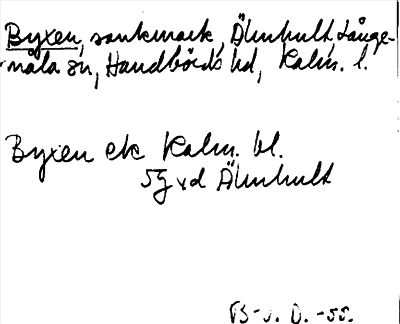 Byxen, sankmark, Älmhult, Långe-
måla sn, Handbörds hd, Kalm. l.
Byxen ek Kalm. bl.
5g v d Älmhult
B-s. D. -55.